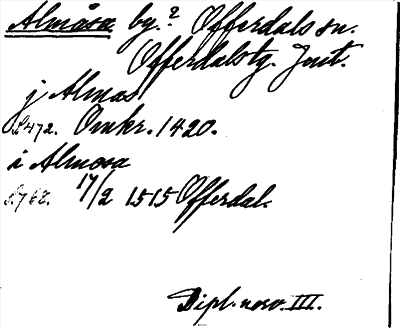 Almåsa by? Offerdals sn.
Offerdals tg. Jmt.
j Almas
S. 472. Omkr. 1420.
i Almosa
S. 762. 17/2 1515 Offerdal.
Dipl. norv. III.